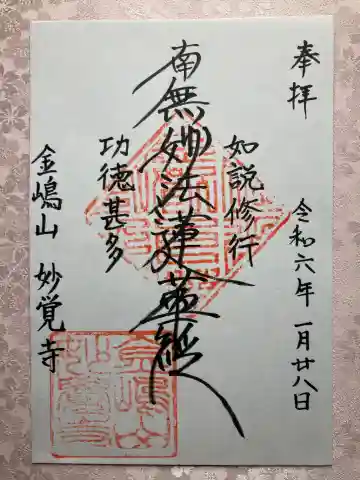 奉拝
令和六年一月廿八日
如説修行
南無妙法蓮華経
功徳甚多
金嶋山 妙覚寺